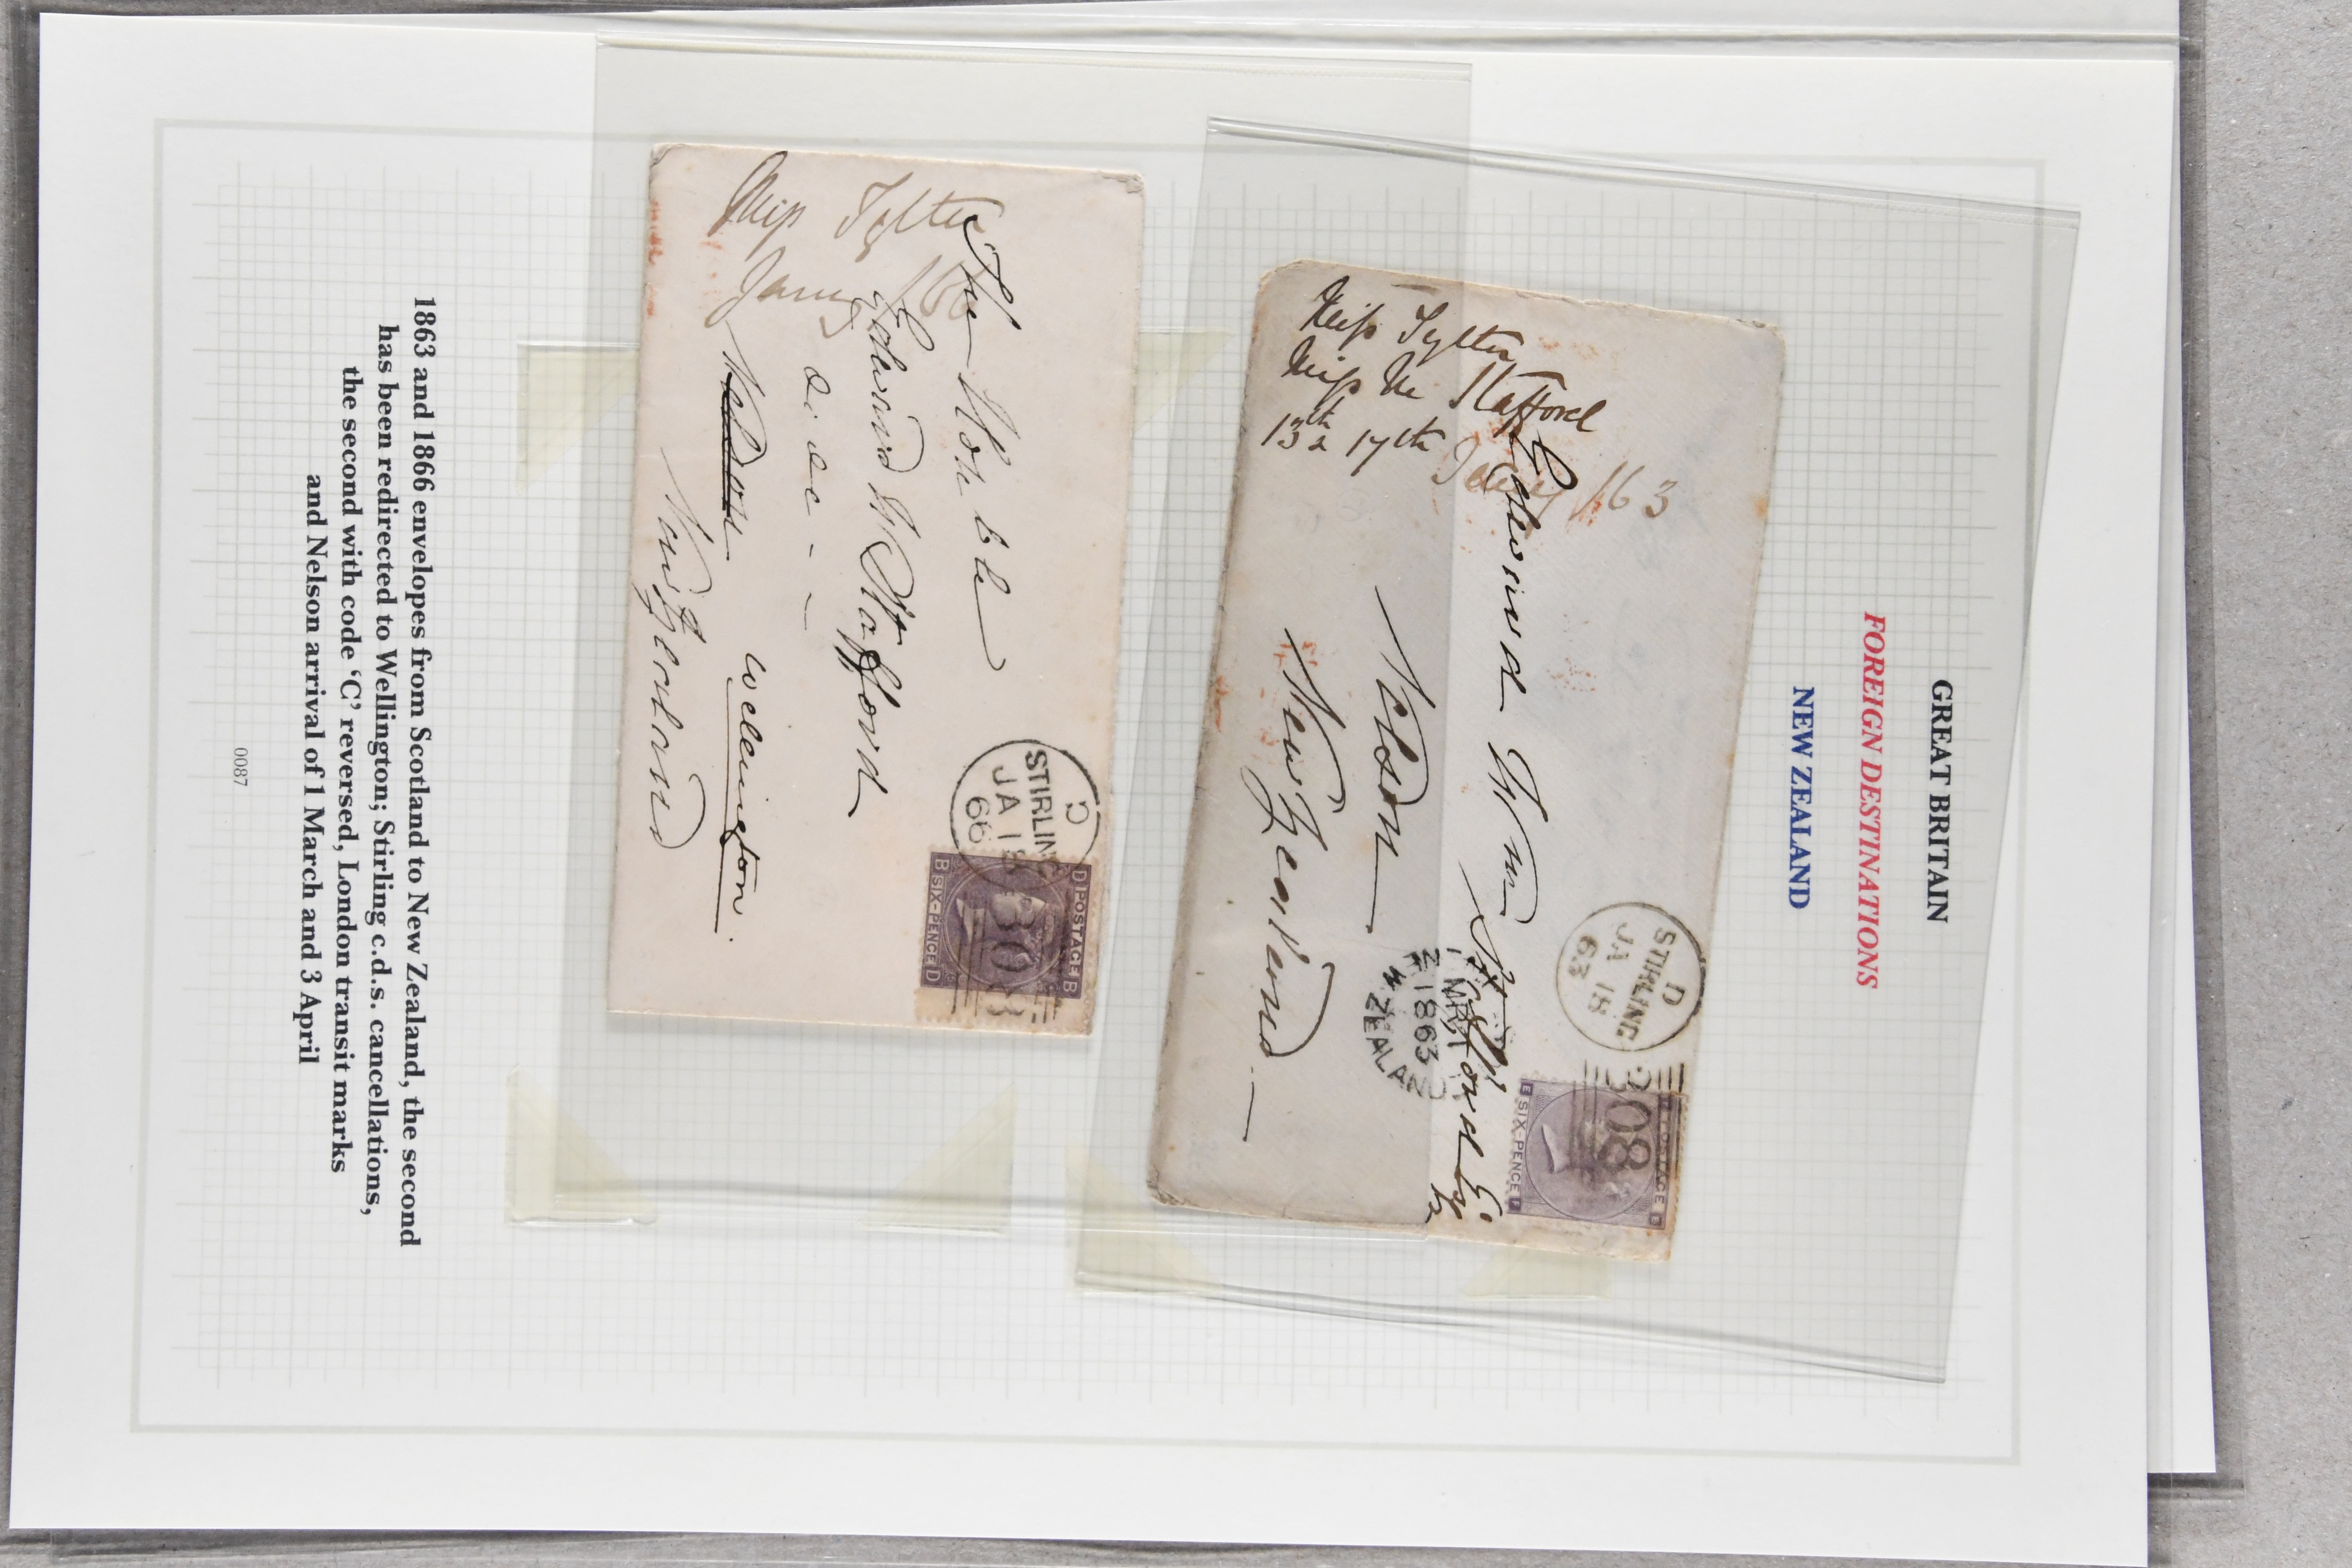 GREAT BRITAIN
FOREIGN DESTINATIONS
NEW ZEALAND
Miss Tytler
Miss M Stafford
13th & 17th Jany /63
Edward Wm Stafford Esq
Nelson
New Zealand
D
STIRLING
JA 18
63
308
POSTAGE
SIX-PENCE
1 MR
1863
ZEALAND
Miss Tytler
Jany /66
The Honble
Edward W Stafford
Nelson
Wellington
New Zealand
C
STIRLING
JA 18
66
308
D POSTAGE B
B SIX-PENCE D
1863 and 1866 envelopes from Scotland to New Zealand, the second
has been redirected to Wellington; Stirling c.d.s. cancellations,
the second with code ‘C’ reversed, London transit marks
and Nelson arrival of 1 March and 3 April
0087